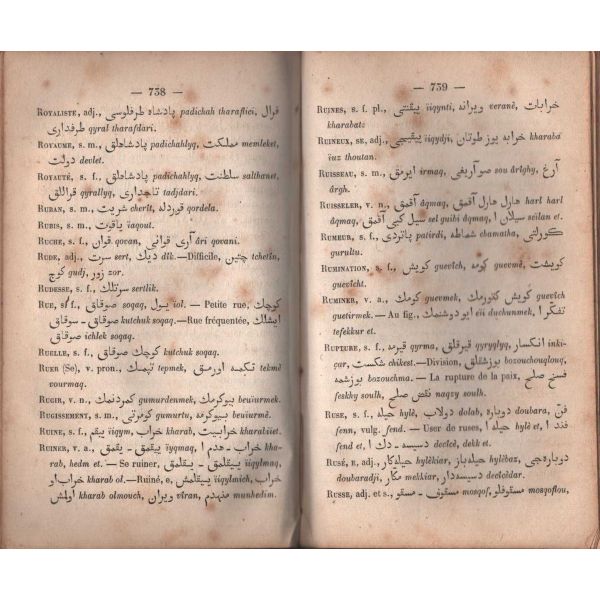 — 738 —
ROYALISTE, adj., پادشاه طرفلوسی padichah tharaflici, قرال
طرفداری qyral tharafdári.
ROYAUME, s. m., پادشاهلق padichahlyq, مملكت memleket,
دولت devlet.
ROYAUTÉ, s. f., پادشاهلق padichahlyq, سلطنت salthanet,
قراللق qyrallyq, تاجدارى tadjdari.
RUBAN, s. m., شریت cherît, قوردله qordela.
RUBIS, s. m., ياقوت ïaqout.
RUCHE, s. f., قوان qovan, آری قوانی âri qovani.
RUDE, adj., ديك dik, سرت sert.—Difficile, چتين tchetîn,
كوج gudj, زور zor.
RUDESSE, s. f., سرتلك sertlik.
RUE, s. f., صوقاق soqaq, يول ïol. — Petite rue, كوچك
صوقاق kutchuk soqaq.—Rue fréquentée, ايشلك
صوقاق ichlek soqaq.
RUELLE, s. f., كوچك صوقاق kutchuk soqaq.
RUER (Se), v. pron., تپمك tepmek, تكمه اورمق tekmè
vourmaq.
RUGIR, v. n., كمردنمك gumurdenmek, بيوكرمك beuïurmek.
RUGISSEMENT, s. m., كومرتى gumurtu, بيوكرمه beuïurmè.
RUINE, s. f., ييقم ïiqym, خراب kharab, خرابيت kharabiïet.
RUINER, v. a., ييقمق ïyqmaq, خراب - هدم ا kha-
rab, hedm et. — Se ruiner, ييقلمق ïiqylmaq,
خراب او kharab ol.—Ruiné, e, ييقلمش ïiqylmich,
خراب اولمش kharab olmouch, ويران vîran, منهدم munhedim.
— 739 —
RUINES, s. f. pl., ييقنتى ïiqynti, ويرانه veranè, خرابات
kharabatz
RUINEUX, SE, adj., ييقيجى ïiqydji, خرابه يوز طوتان kharaba
ïuz thoutan.
RUISSEAU, s. m., ايرمق irmaq, صو آريغى sou ârîghy, آرغ
ârgh.
RUISSELER, v. n., آقمق âqmaq, هارل هارل آقمق harl harl
âqmaq, سيل كبى آقمق sel guibi âqmaq, سيلان ا seïlan et.
RUMEUR, s. f., پاتردى patirdi, شماطه chamatha, كورلتى
gurultu.
RUMINATION, s. f., كويش guevîch, كومه guevmè, كويشت
guevîcht.
RUMINER, v. a., كومك guevmek, كويش كتورمك guevîch
guetirmek.— Au fig., ايو دوشنمك eïi duchunmek, تفكر ا
tefekkur et.
RUPTURE, s. f., قيرمه qyrma, قيرقلق qyryqlyq, انكسار inki-
çar, شكست chikest.—Division, بوزشقلق bozouchouqlouq,
بوزشمه bozouchma. — La rupture de la paix, فسخ صلح
feskhy soulh, نقض صلح naqzy soulh.
RUSE, s. f., حيله hylè, دولاب dolab, دوباره doubara, فنّ
fenn, vulg. fend. — User de ruses, حيله ا hylè et, فند ا
fend et, دسيسه - دك ا decîcè, dekk et.
RUSÉ, E, adj., حيله كار hylèkiar, حيله باز hylèbaz, دوباره جى
doubaradji, مكّار mekkiar, دسيسه دار decîcèdar.
RUSSE, adj. et s., مسقوف - مسقو mosqof, مسقوفلو mosqoflou,